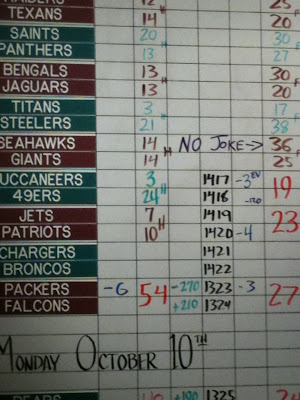 TEXANS 14 20
SAINTS 20 H 30 F
PANTHERS 13 27
BENGALS 13 H 30 F
JAGUARS 13 20
TITANS 3 H 17 F
STEELERS 21 38
SEAHAWKS 14 H NO JOKE→ 36 F
GIANTS 14 25
UCCANEERS 3 H 1417 -3 EV 19
49ERS 24 1418 -120
JETS 7 H 1419 23
PATRIOTS 10 1420 -4
CHARGERS 1421
BRONCOS 1422
PACKERS -6 54 -270 1323 -3 27
FALCONS +210 1324
MONDAY OCTOBER 10TH
+190 1325